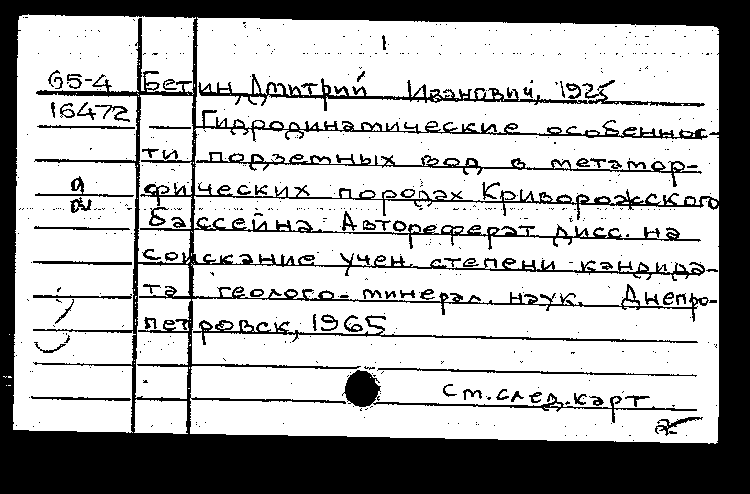 1
65-4 Бетин, Дмитрий Иванович, 1925
16472 Гидродинамические особеннос-
ти подземных вод в метамор-
фических породах Криворожского
бассейна. Автореферат дисс. на
соискание учен. степени кандида-
та геолого-минерал. наук. Днепро-
петровск, 1965
см. след. карт.